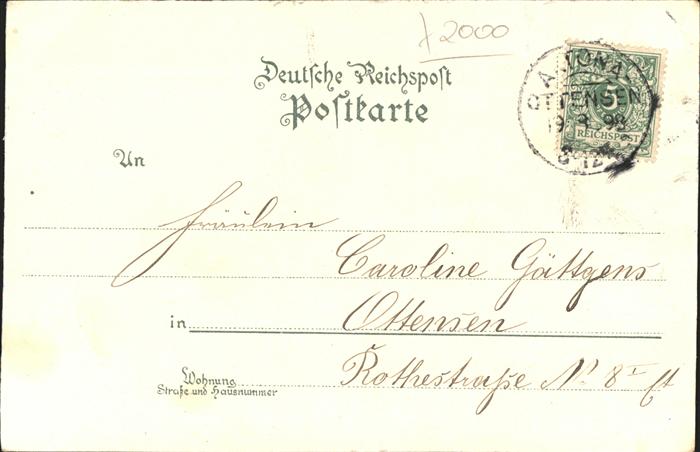 2000
Deutsche Reichspost
Postkarte
ALTONA
OTTENSEN
19.3.98
5
REICHSPOST
An
Fräulein
Caroline Göttgens
in Ottensen
Wohnung
Straße und Hausnummer
Rothestraße No 8 I